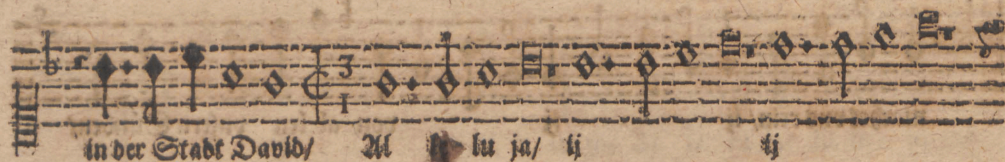 in der Stadt David/ Al le lu ja/ ij ij